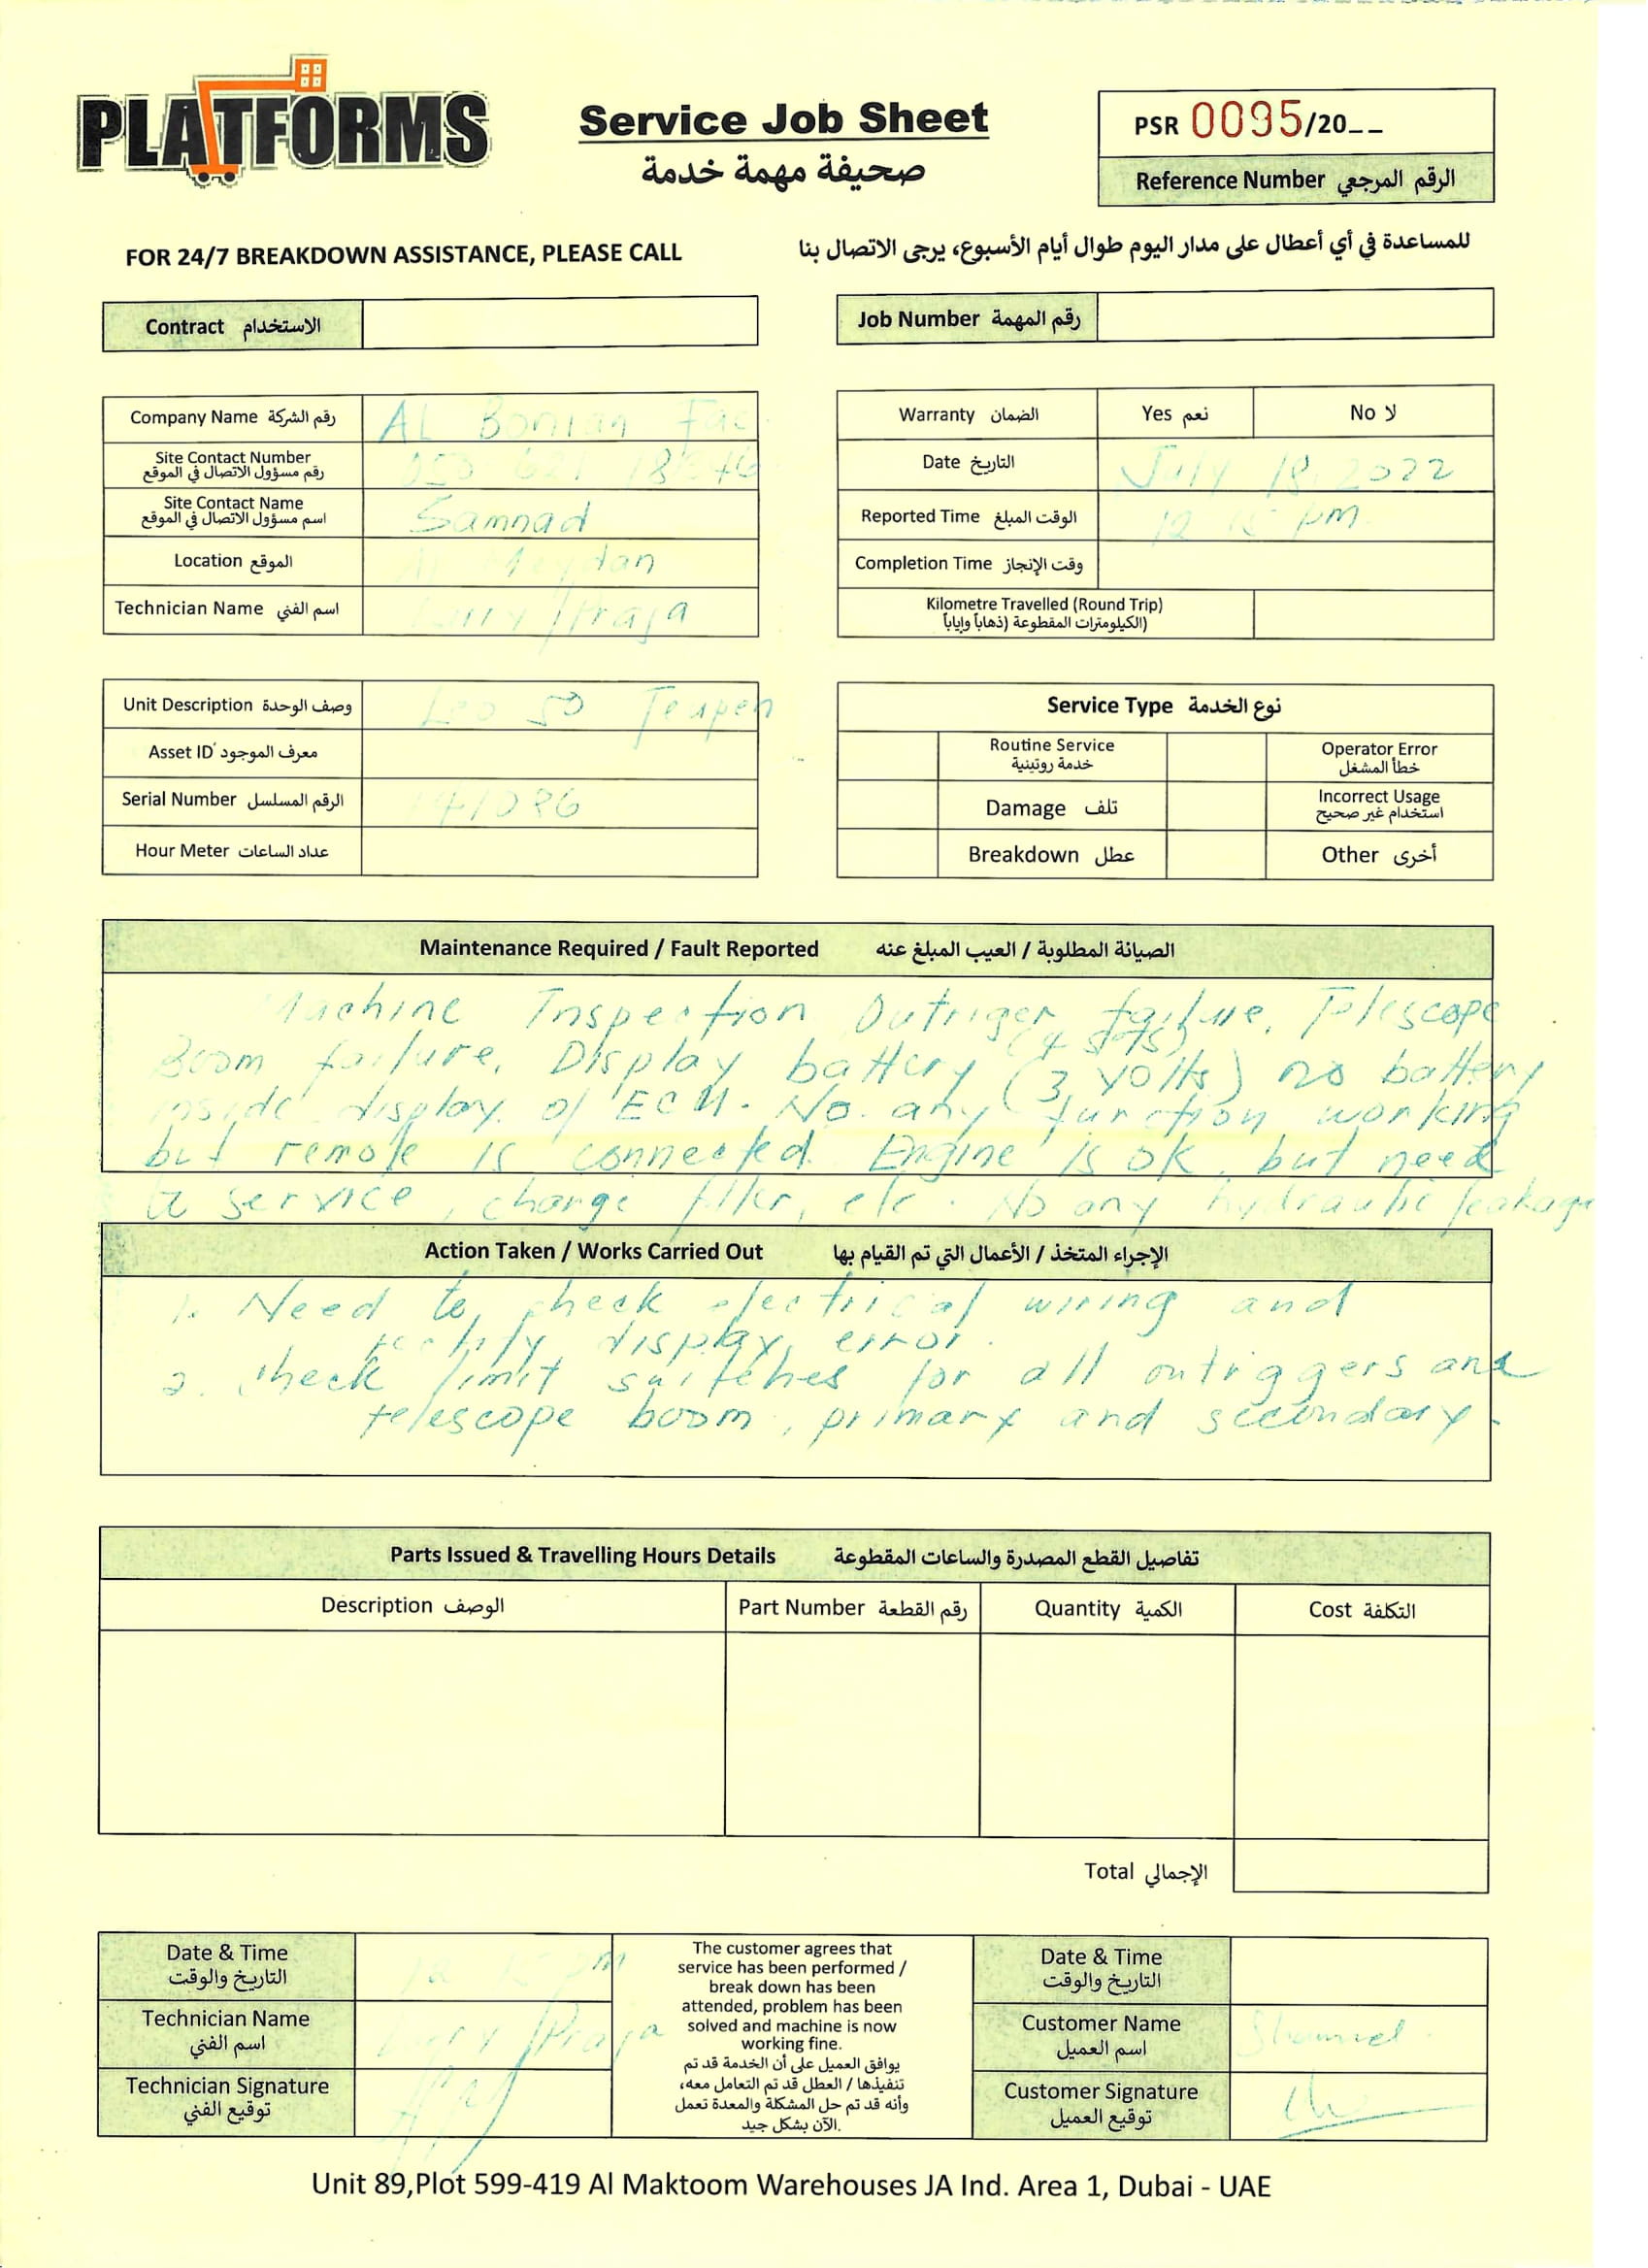 PLATFORMS
Service Job Sheet
صحيفة مهمة خدمة
PSR 0095/20__
Reference Number الرقم المرجعي
FOR 24/7 BREAKDOWN ASSISTANCE, PLEASE CALL
للمساعدة في أي أعطال على مدار اليوم طوال أيام الأسبوع، يرجى الاتصال بنا
Contract الاستخدام
Job Number رقم المهمة
Company Name رقم الشركة AL Bonian Fac
Site Contact Number
رقم مسؤول الاتصال في الموقع
Site Contact Name
اسم مسؤول الاتصال في الموقع Samnad
Location الموقع
Technician Name اسم الفني /Praja
Warranty الضمان Yes نعم No لا
Date التاريخ July 18, 2022
Reported Time الوقت المبلغ 12 15 pm
Completion Time وقت الإنجاز
Kilometre Travelled (Round Trip)
الكيلومترات المقطوعة (ذهاباً وإياباً)
Unit Description وصف الوحدة Leo 50 Teupen
Asset ID معرف الموجود
Serial Number الرقم المسلسل
Hour Meter عداد الساعات
Service Type نوع الخدمة
Routine Service
خدمة روتينية
Operator Error
خطأ المشغل
Damage تلف
Incorrect Usage
استخدام غير صحيح
Breakdown عطل
Other أخرى
Maintenance Required / Fault Reported الصيانة المطلوبة / العيب المبلغ عنه
Machine Inspection Outriger failure, Telescope
Boom failure, Display battery (3 volts) no battery
inside display of ECM. No any function working
but remote is connected. Engine is ok, but need
a service, change filter, etc. No any hydraulic leakage
Action Taken / Works Carried Out الإجراء المتخذ / الأعمال التي تم القيام بها
1. Need to check electrical wiring and
display error.
2. check limit switches for all outriggers and
telescope boom, primary and secondary.
Parts Issued & Travelling Hours Details تفاصيل القطع المصدرة والساعات المقطوعة
Description الوصف Part Number رقم القطعة Quantity الكمية Cost التكلفة
Total الإجمالي
Date & Time
التاريخ والوقت
Technician Name
اسم الفني /Praja
Technician Signature
توقيع الفني
The customer agrees that
service has been performed /
break down has been
attended, problem has been
solved and machine is now
working fine.
يوافق العميل على أن الخدمة قد تم
تنفيذها / العطل قد تم التعامل معه،
وأنه قد تم حل المشكلة والمعدة تعمل
الآن بشكل جيد.
Date & Time
التاريخ والوقت
Customer Name
اسم العميل
Customer Signature
توقيع العميل
Unit 89,Plot 599-419 Al Maktoom Warehouses JA Ind. Area 1, Dubai - UAE